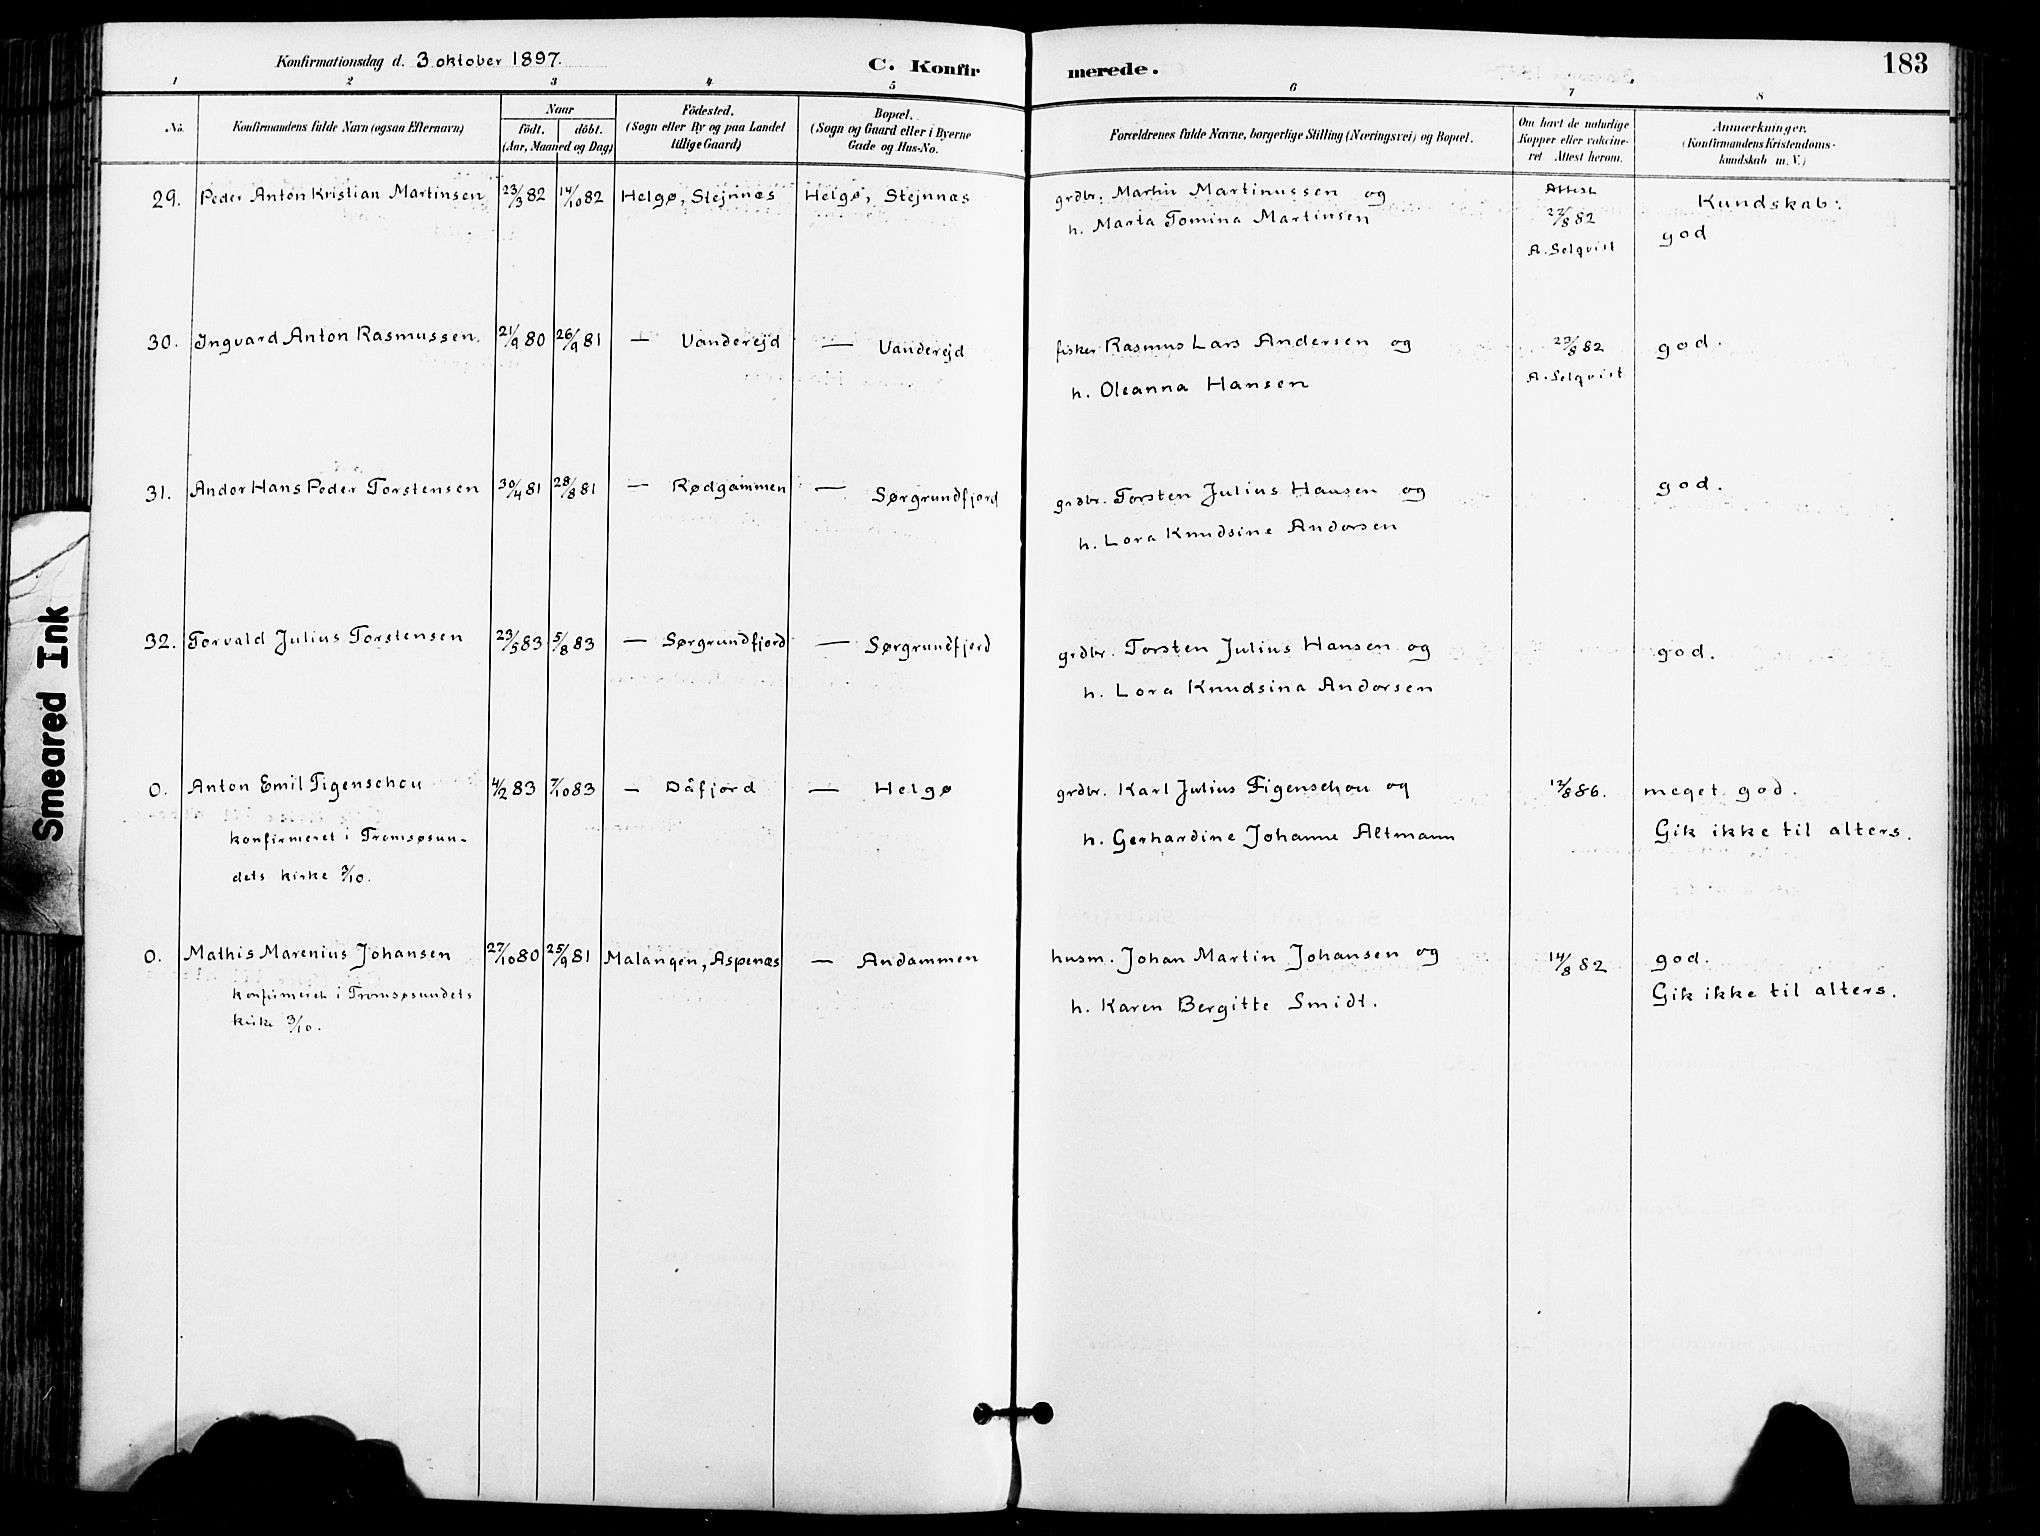 Konfirmationsdag d. 3 oktober 1897.
C. Konfir
merede.
183
1 2 3 4 5 6 7 8
No.
Konfirmandens fulde Navn (ogsaa Efternavn)
Naar
födt. döbt.
(Aar, Maaned og Dag)
Födested.
(Sogn eller By og paa Landet
tillige Gaard)
Bopæl.
(Sogn og Gaard eller i Byerne
Gade og Hus-No.
Forældrenes fulde Navne, borgerlige Stilling (Næringsvei) og Bopæl.
Om havt de naturlige
Kopper eller vakcine-
ret Attest herom.
Anmærkninger.
(Konfirmandens Kristendoms-
kundskab m. V.)
29. Peder Anton Kristian Martinsen 23/3 82 14/10 82 Helgø, Stejnnæs Helgø, Stejnnæs grdbr. Martin Martinussen og Attest Kundskab:
h. Marta Tomina Martinsen 22/8 82 god
A. Selqvist
30. Ingvard Anton Rasmussen. 21/9 80 26/9 81 — Vanderejd — Vanderejd fisker Rasmus Lars Andersen og 23/8 82 god.
h. Oleanna Hansen A. Selqvist
31. Andor Hans Peder Torstensen 30/4 81 28/8 81 — Rødgammen — Sørgrundfjord grdbr. Torsten Julius Hansen og god.
h. Lora Knudsine Andorsen
32. Torvald Julius Torstensen 23/5 83 5/8 83 — Sørgrundfjord — Sørgrundfjord grdbr. Torsten Julius Hansen og god.
h. Lora Knudsina Andorsen
0. Anton Emil Figenschou 4/2 83 7/10 83 — Dåfjord — Helgø grdbr. Karl Julius Figenschou og 12/8 86. meget god.
konfirmeret i Tromsøsun- h. Gerhardine Johanne Altmann Gik ikke til alters.
dets kirke 3/10.
0. Mathis Marenius Johansen 27/10 80 25/9 81 Malangen, Aspenæs — Andammen husm. Johan Martin Johansen og 14/8 82 god.
konfirmeret i Tromsøsundets h. Karen Bergitte Smidt. Gik ikke til alters.
kirke 3/10.
Smeared Ink